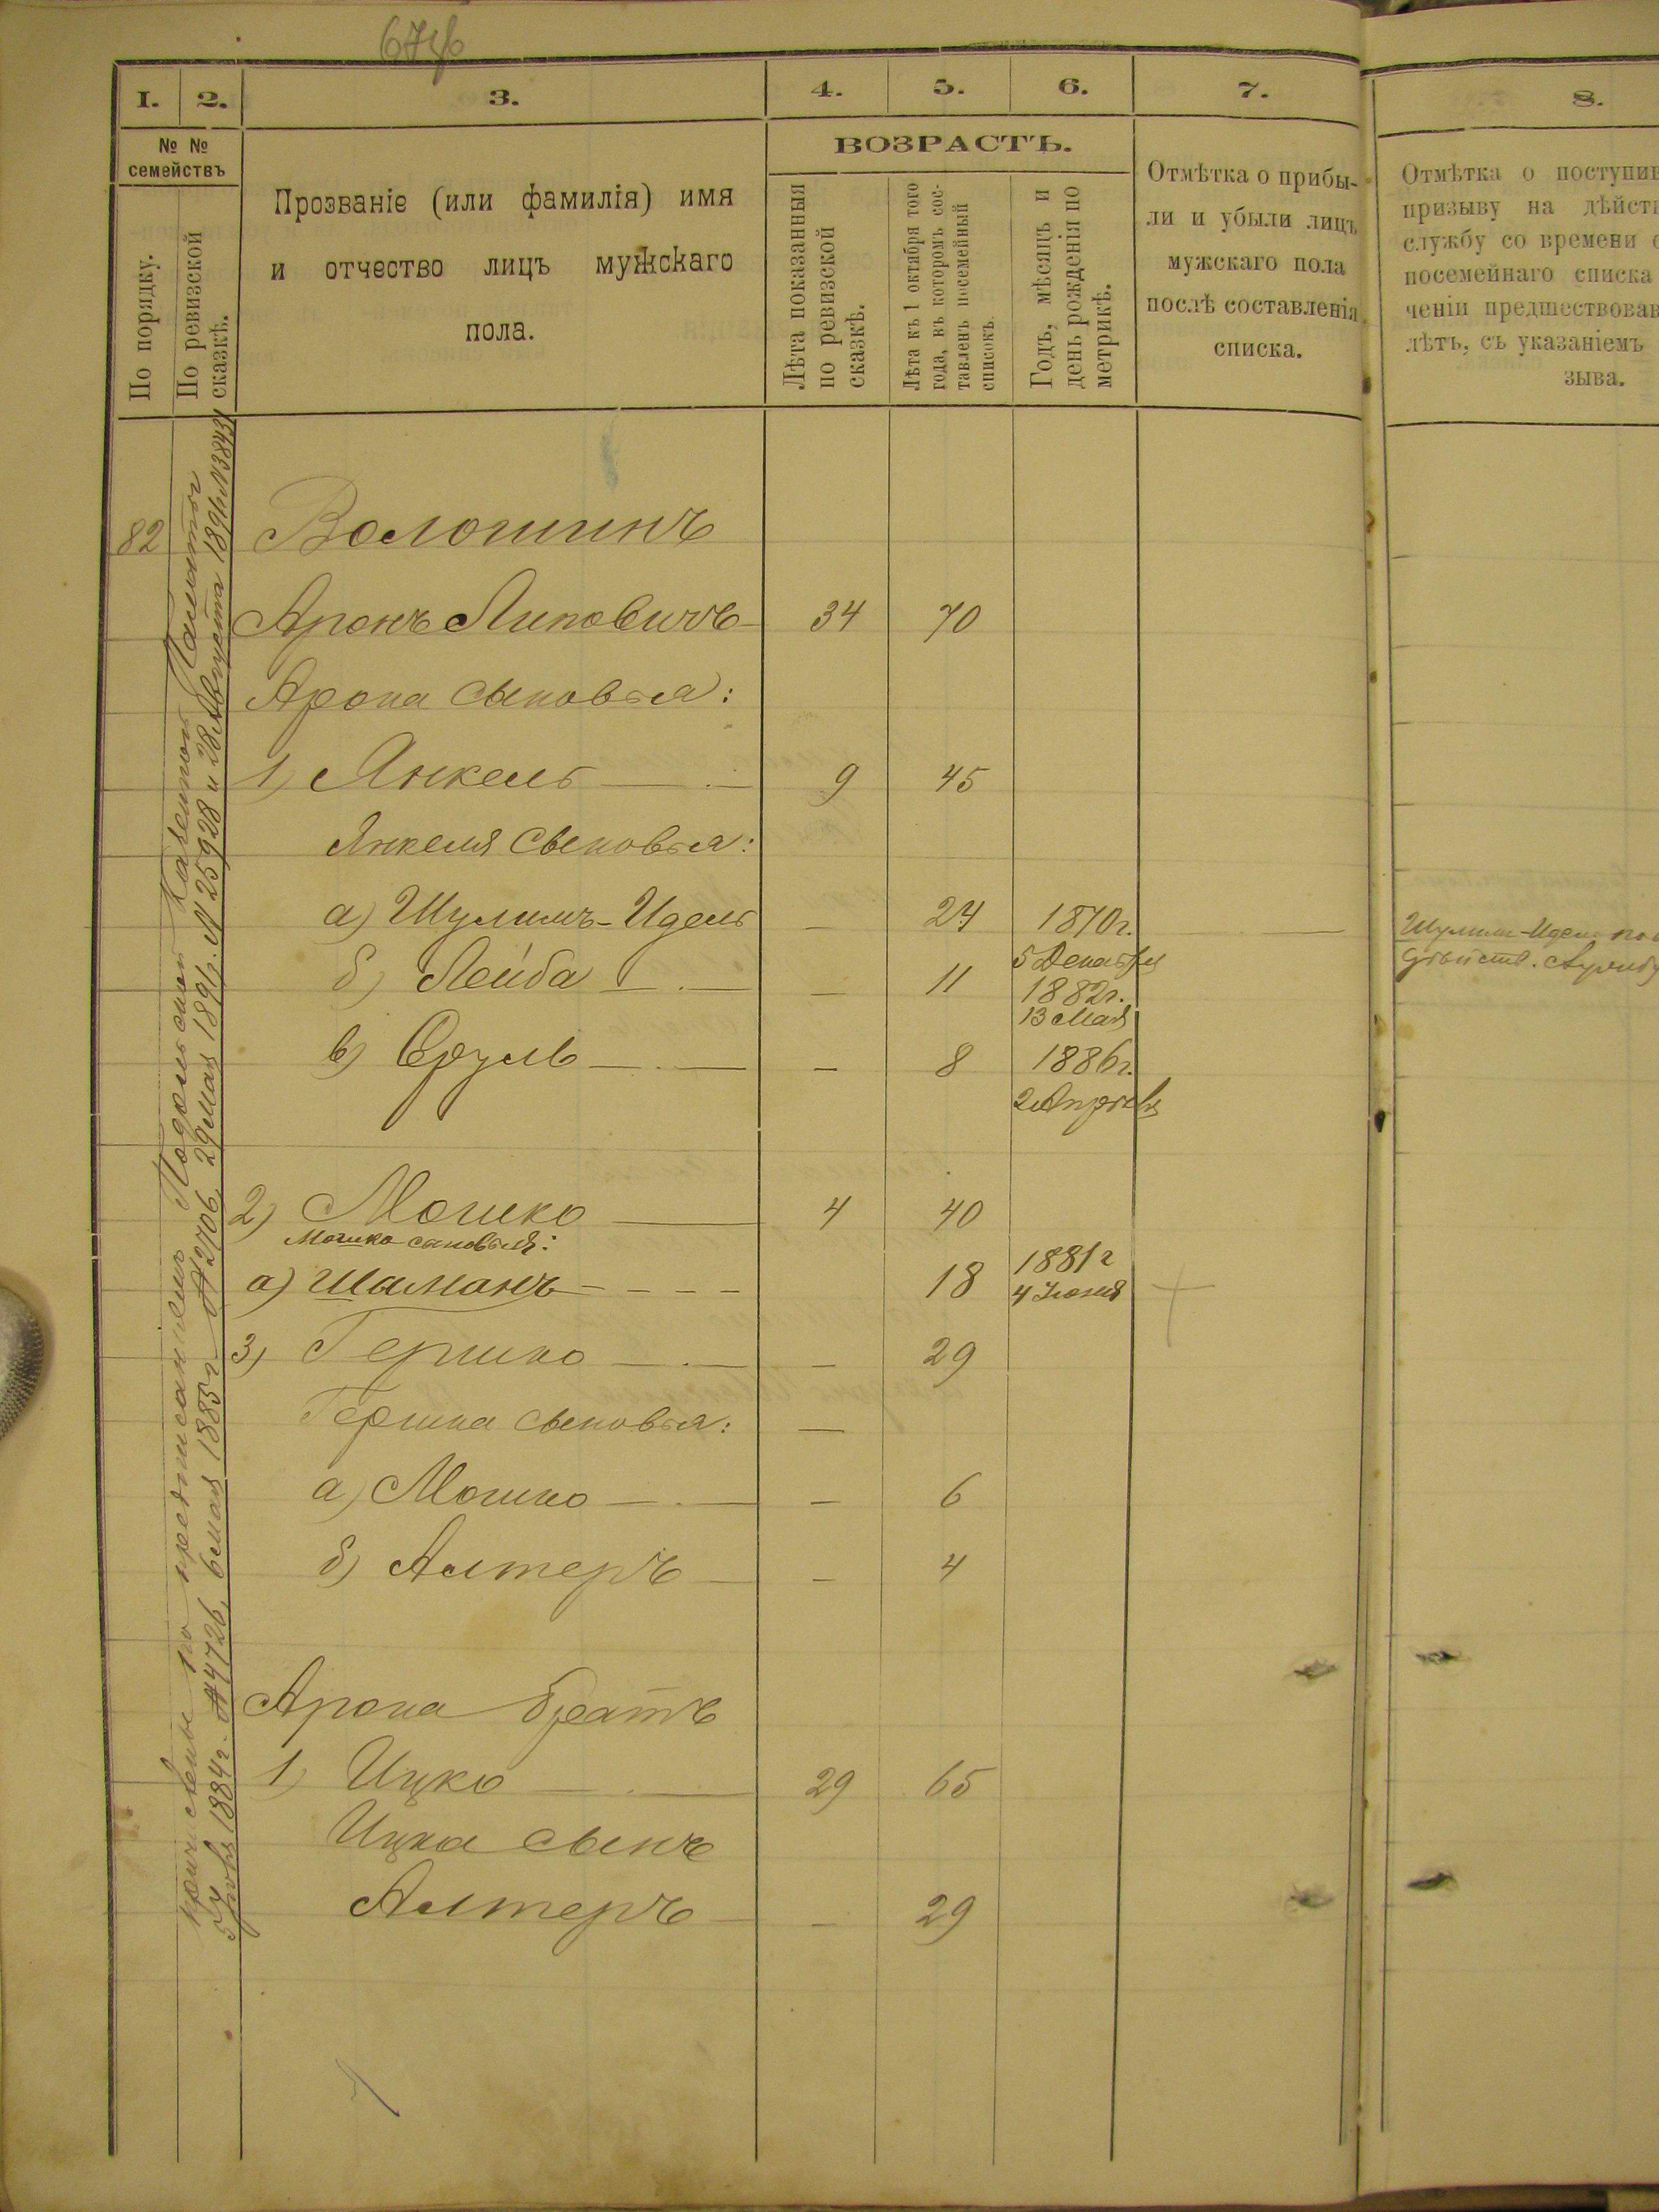 I.
2.
3.
4.
5.
6.
7.
8.
№ №
семействъ
По порядку.
По ревизской
сказкѣ.
Прозваніе (или фамилія) имя
и отчество лицъ мужскаго
пола.
ВОЗРАСТЪ.
Лѣта показанныя
по ревизской
сказкѣ.
Лѣта къ 1 октября того
года, въ которомъ сос-
тавленъ посемейный
списокъ.
Годъ, мѣсяцъ и
день рожденія по
метрикѣ.
Отмѣтка о прибы-
ли и убыли лицъ
мужскаго пола
послѣ составленія
списка.
Отмѣтка о поступив
призыву на дѣйств
службу со времени с
посемейнаго списка
ченіи предшествовав
лѣтъ, съ указаніемъ
зыва.
причислены по предписаніямъ Подольской Казенной Палаты
1884г. №4726, 6 мая 1885г №2706, 29 мая 1891г. №25928 и 28 Августа 1891г. №38431
82 Волошинъ
Аронъ Липовичъ 34 70
Арона сыновья:
1) Янкель 9 45
Янкеля сыновья:
а) Шулимъ-Идель — 24 1870г.
5 Декабря
Шулим-Идель
дѣйств. службу
б) Лейба — 11 1882г.
13 Мая
в) Сруль — 8 1886г.
2 Апрѣля
2) Мошко 4 40
Мошко сыновья:
а) Шаманъ 18 1881г
4 Июня
3) Гершко — 29
Гершка сыновья: —
а) Мошко — 6
б) Алтеръ — 4
Арона братъ
1) Ицко 29 65
Ицка сынъ
Алтеръ — 29